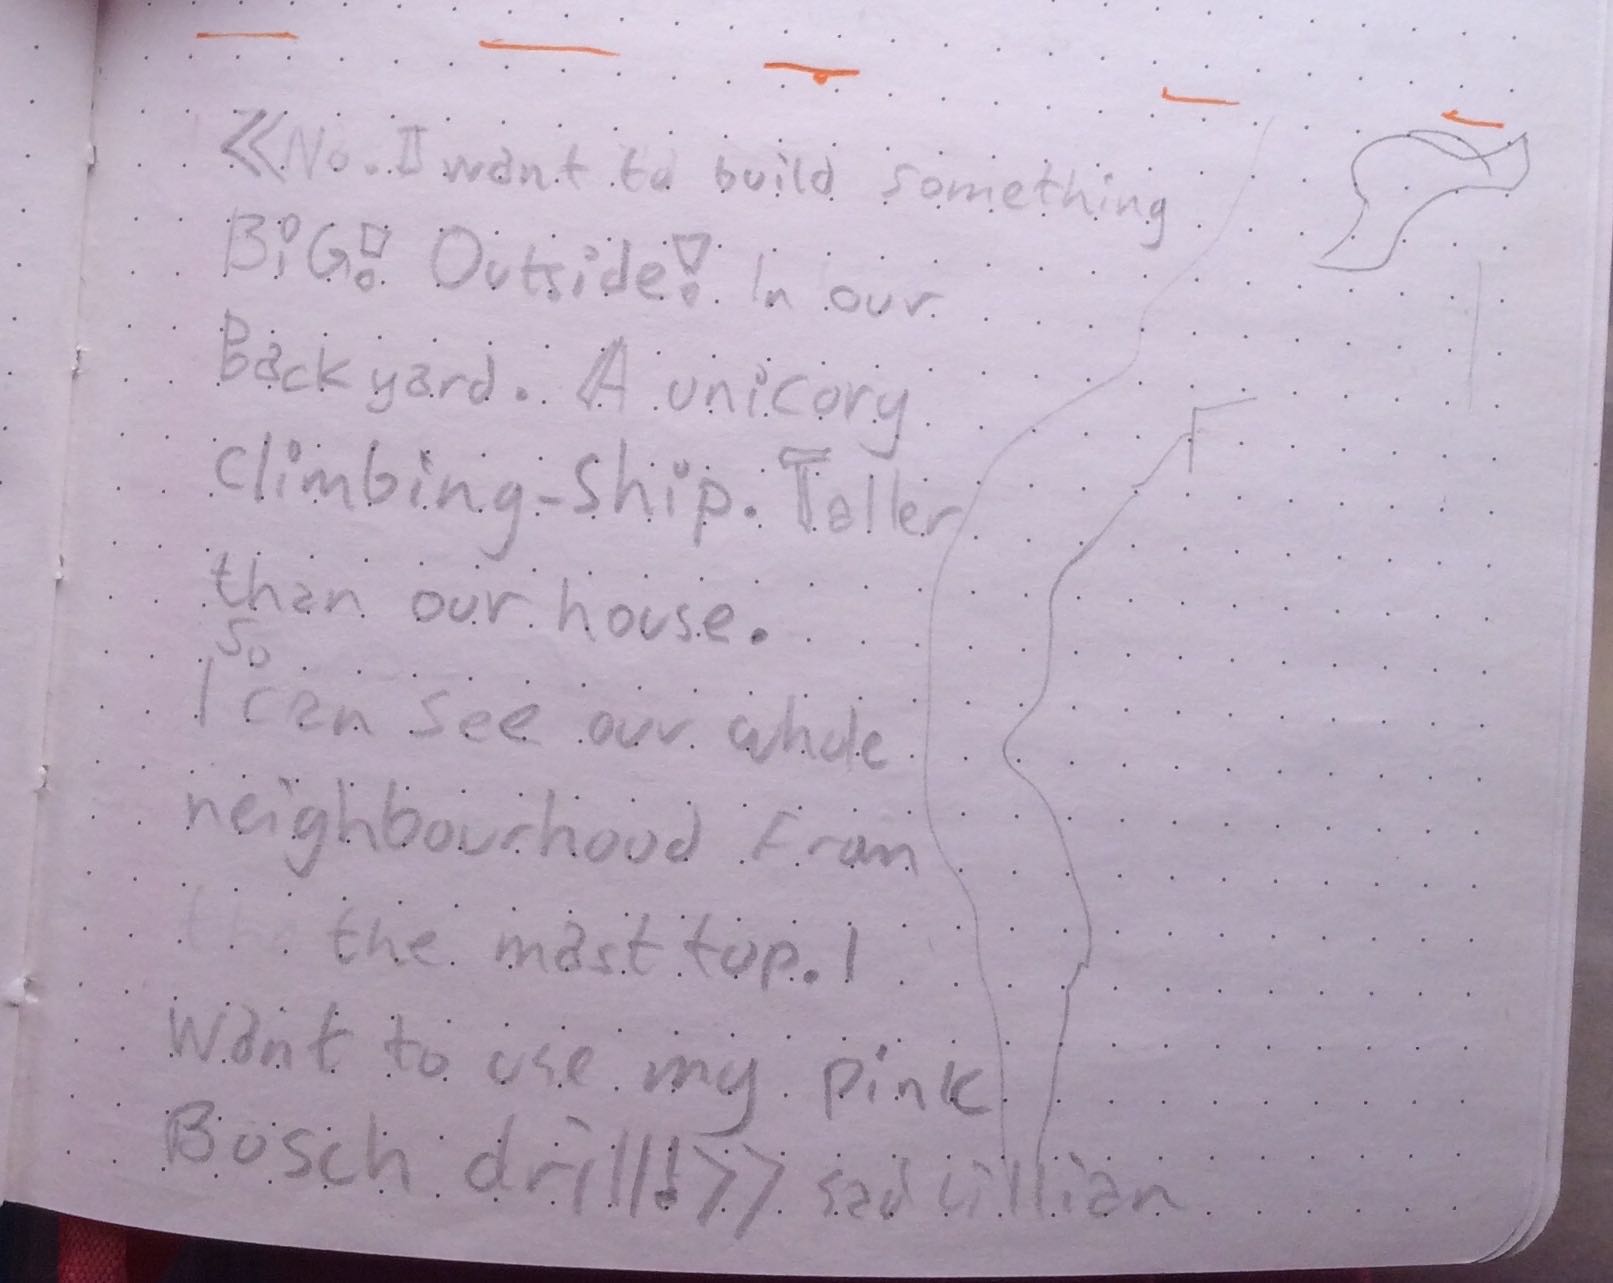 «No. I want to build something
BiG! Outside! In our
Backyard. A unicory
climbing-ship. Taller
than our house.
So
I can see our whole
neighbourhood from
the the mast top. I
want to use my pink
Bosch drill!» sad Lillian